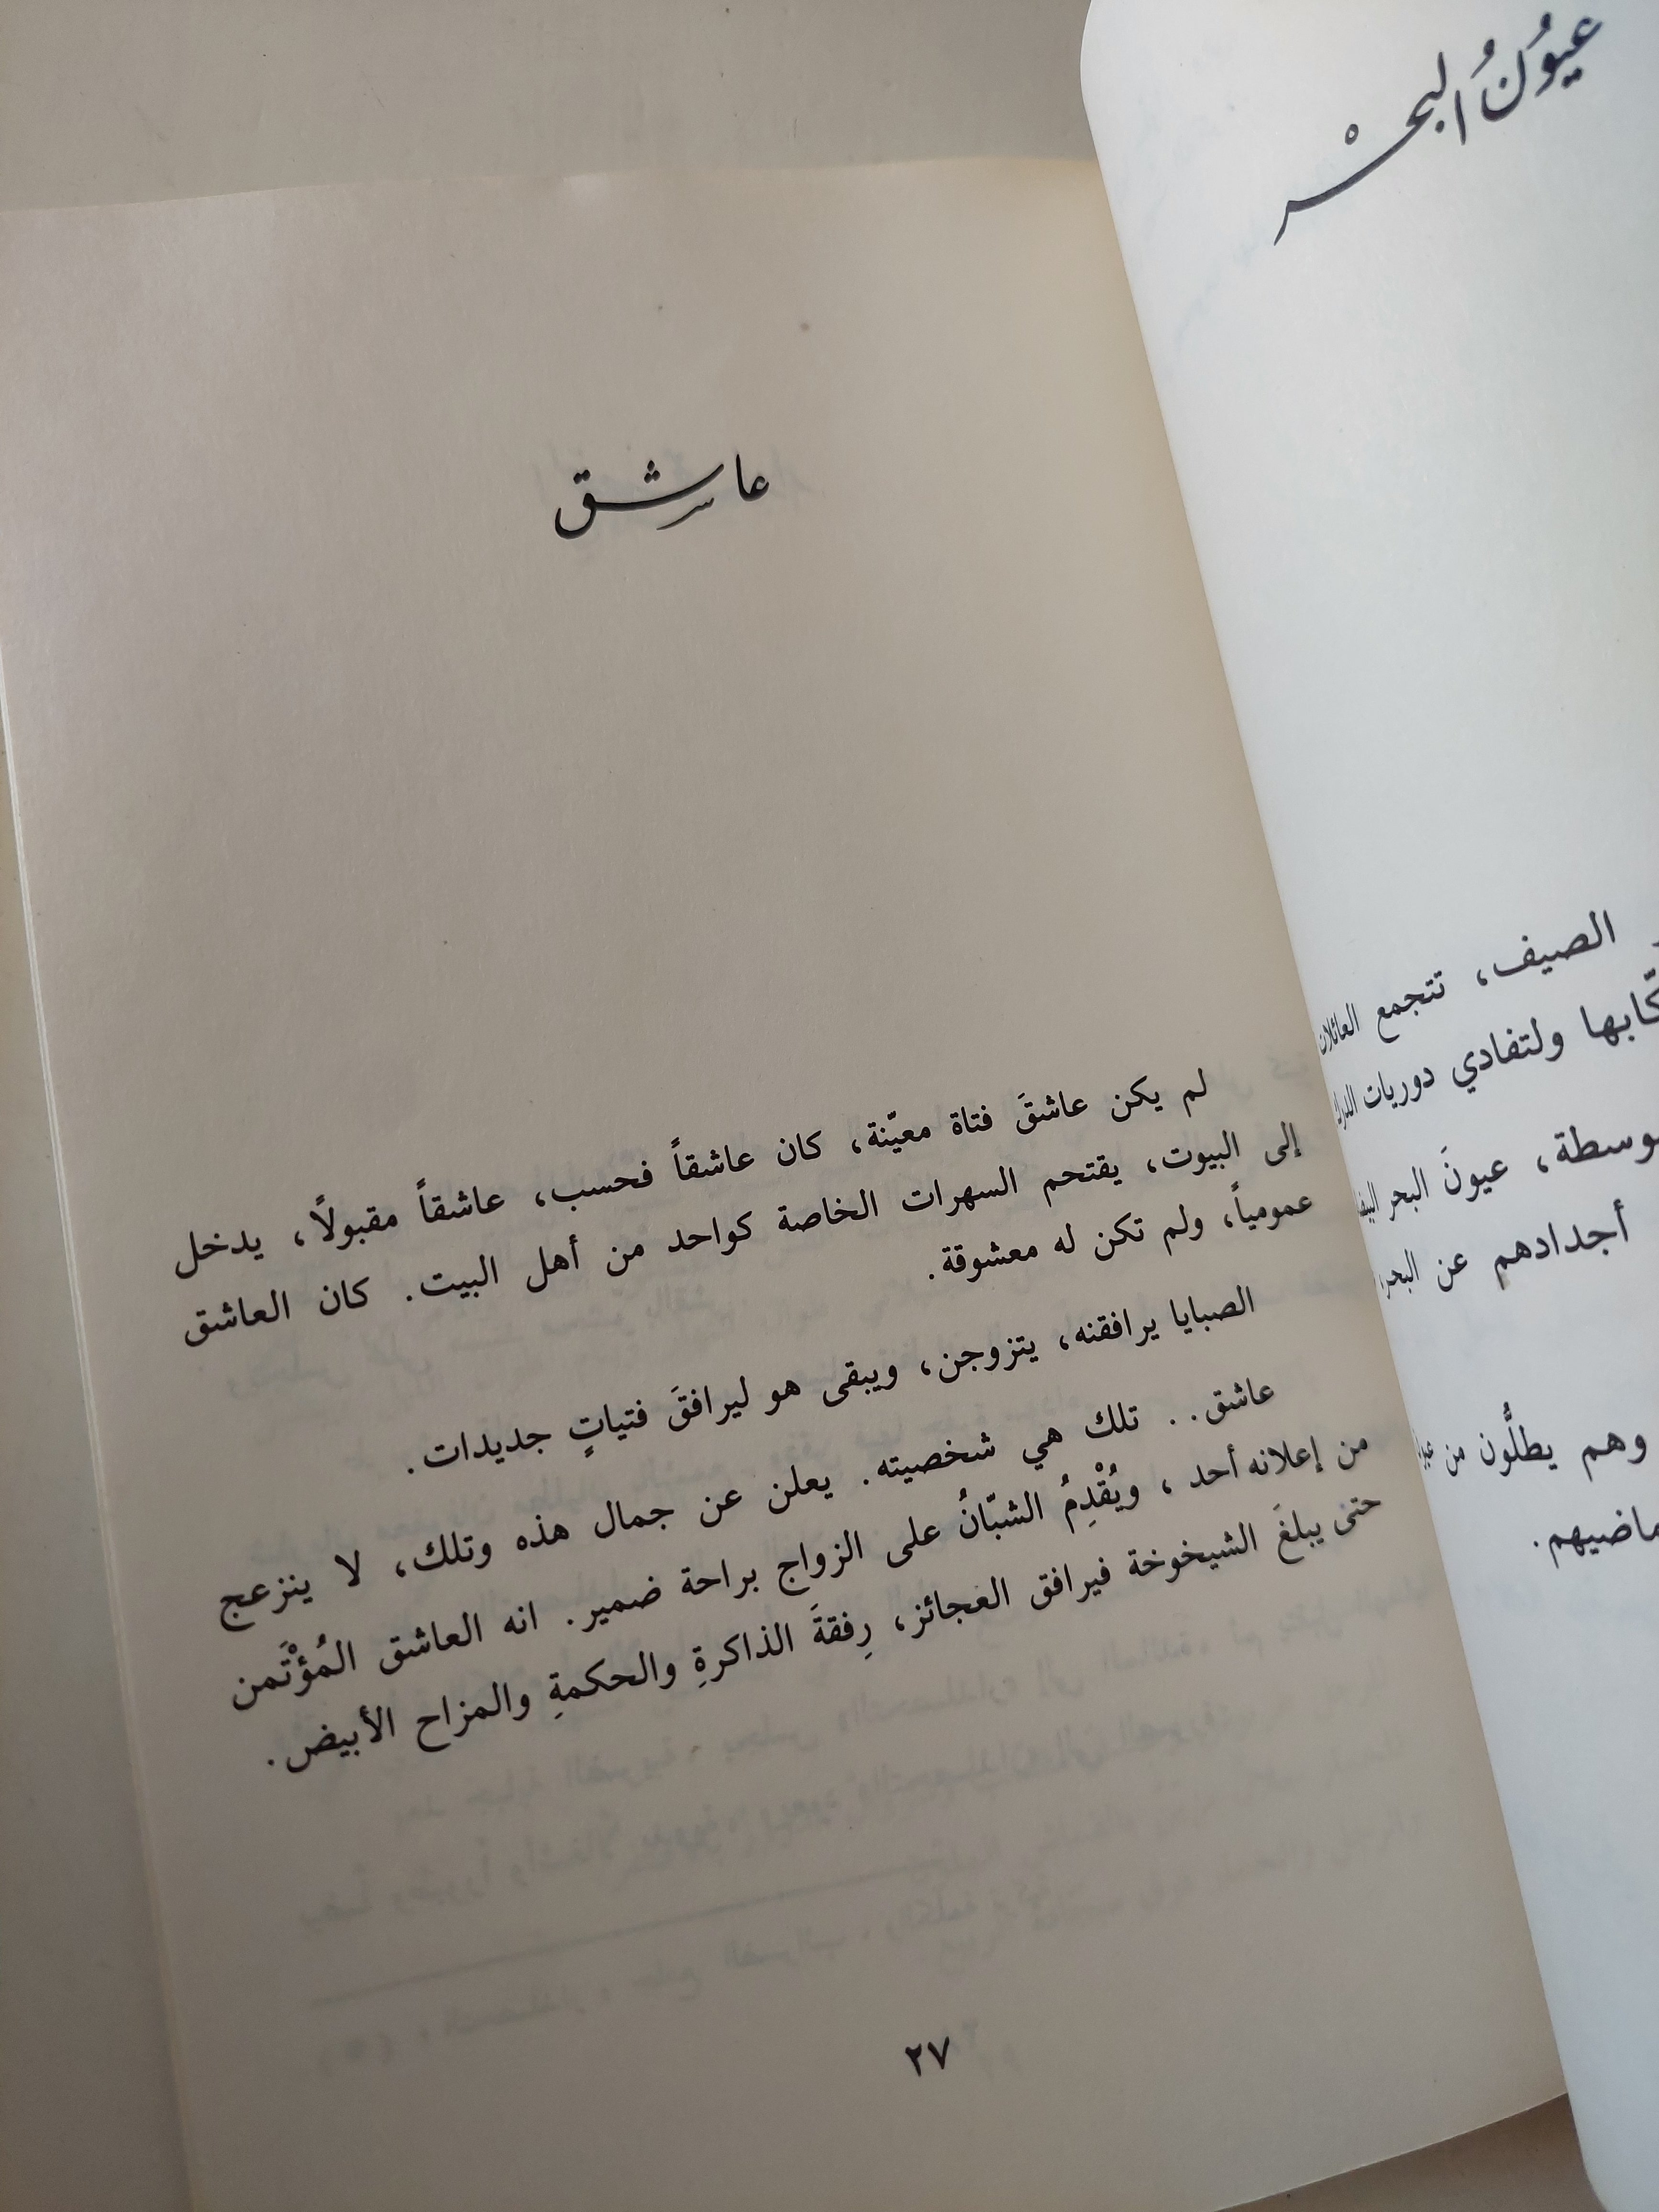 عيُونُ البحْر
الصيف، تتجمع العائلات
ولتفادي دوريات
عيونَ البحر
أجدادهم عن البحر
وهم يطلُّون من
عاشق
لم يكن عاشقَ فتاة معيّنة، كان عاشقاً فحسب، عاشقاً مقبولاً، يدخل
إلى البيوت، يقتحم السهرات الخاصة كواحد من أهل البيت. كان العاشق
عمومياً، ولم تكن له معشوقة.
الصبايا يرافقنه، يتزوجن، ويبقى هو ليرافقَ فتياتٍ جديدات.
عاشق.. تلك هي شخصيته. يعلن عن جمال هذه وتلك، لا ينزعج
من إعلانه أحد، ويُقْدِمُ الشبّانُ على الزواج براحة ضمير. انه العاشق المُؤْتَمن
حتى يبلغَ الشيخوخة فيرافق العجائز، رِفقةَ الذاكرةِ والحكمةِ والمزاح الأبيض.
٢٧